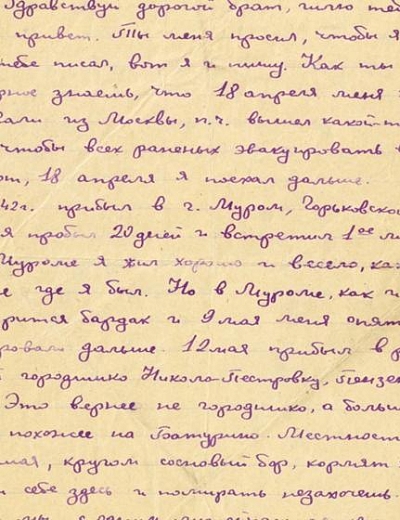 Здравствуй дорогой брат, шлю теб
привет. Ты меня просил, чтобы я
тебе писал, вот я и пишу. Как ты
рное знаешь, что 18 апреля меня
вали из Москвы, п.ч. вышел какой-т
чтобы всех раненых эвакуировать
от, 18 апреля я поехал дальше.
42г. прибыл в г. Муром, Горьковско
я пробыл 20 дней и встретил 1ое м
Муроме я жил хорошо и весело, ка
е где я был. Но в Муроме, как и
рится бардак и 9 мая меня опят
ровали дальше. 12 мая прибыл в р
городишко Никола-Пестровку, Пензен
Это вернее не городишко, а больш
похожее на Батурино. Местност
мая, кругом сосновый бор, кормят
и себе здесь и помирать незахочешь.